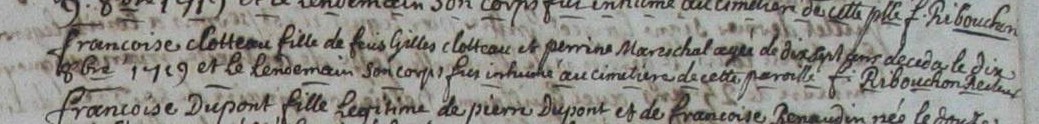 9. 8bre 1719 et le lendemain son corps fut inhumé au cimetiere de cette plle f. Ribouchon
francoise clotteau fille de feus Gilles clotteau et perrine Mareschal agée de dix sept ans deceda le dix
8bre 1719 et le lendemain son corps fut inhumé au cimetiere de cette paroisse f. Ribouchon Recteur
francoise Dupont fille legitime de pierre Dupont et de francoise Renaudin née le douze